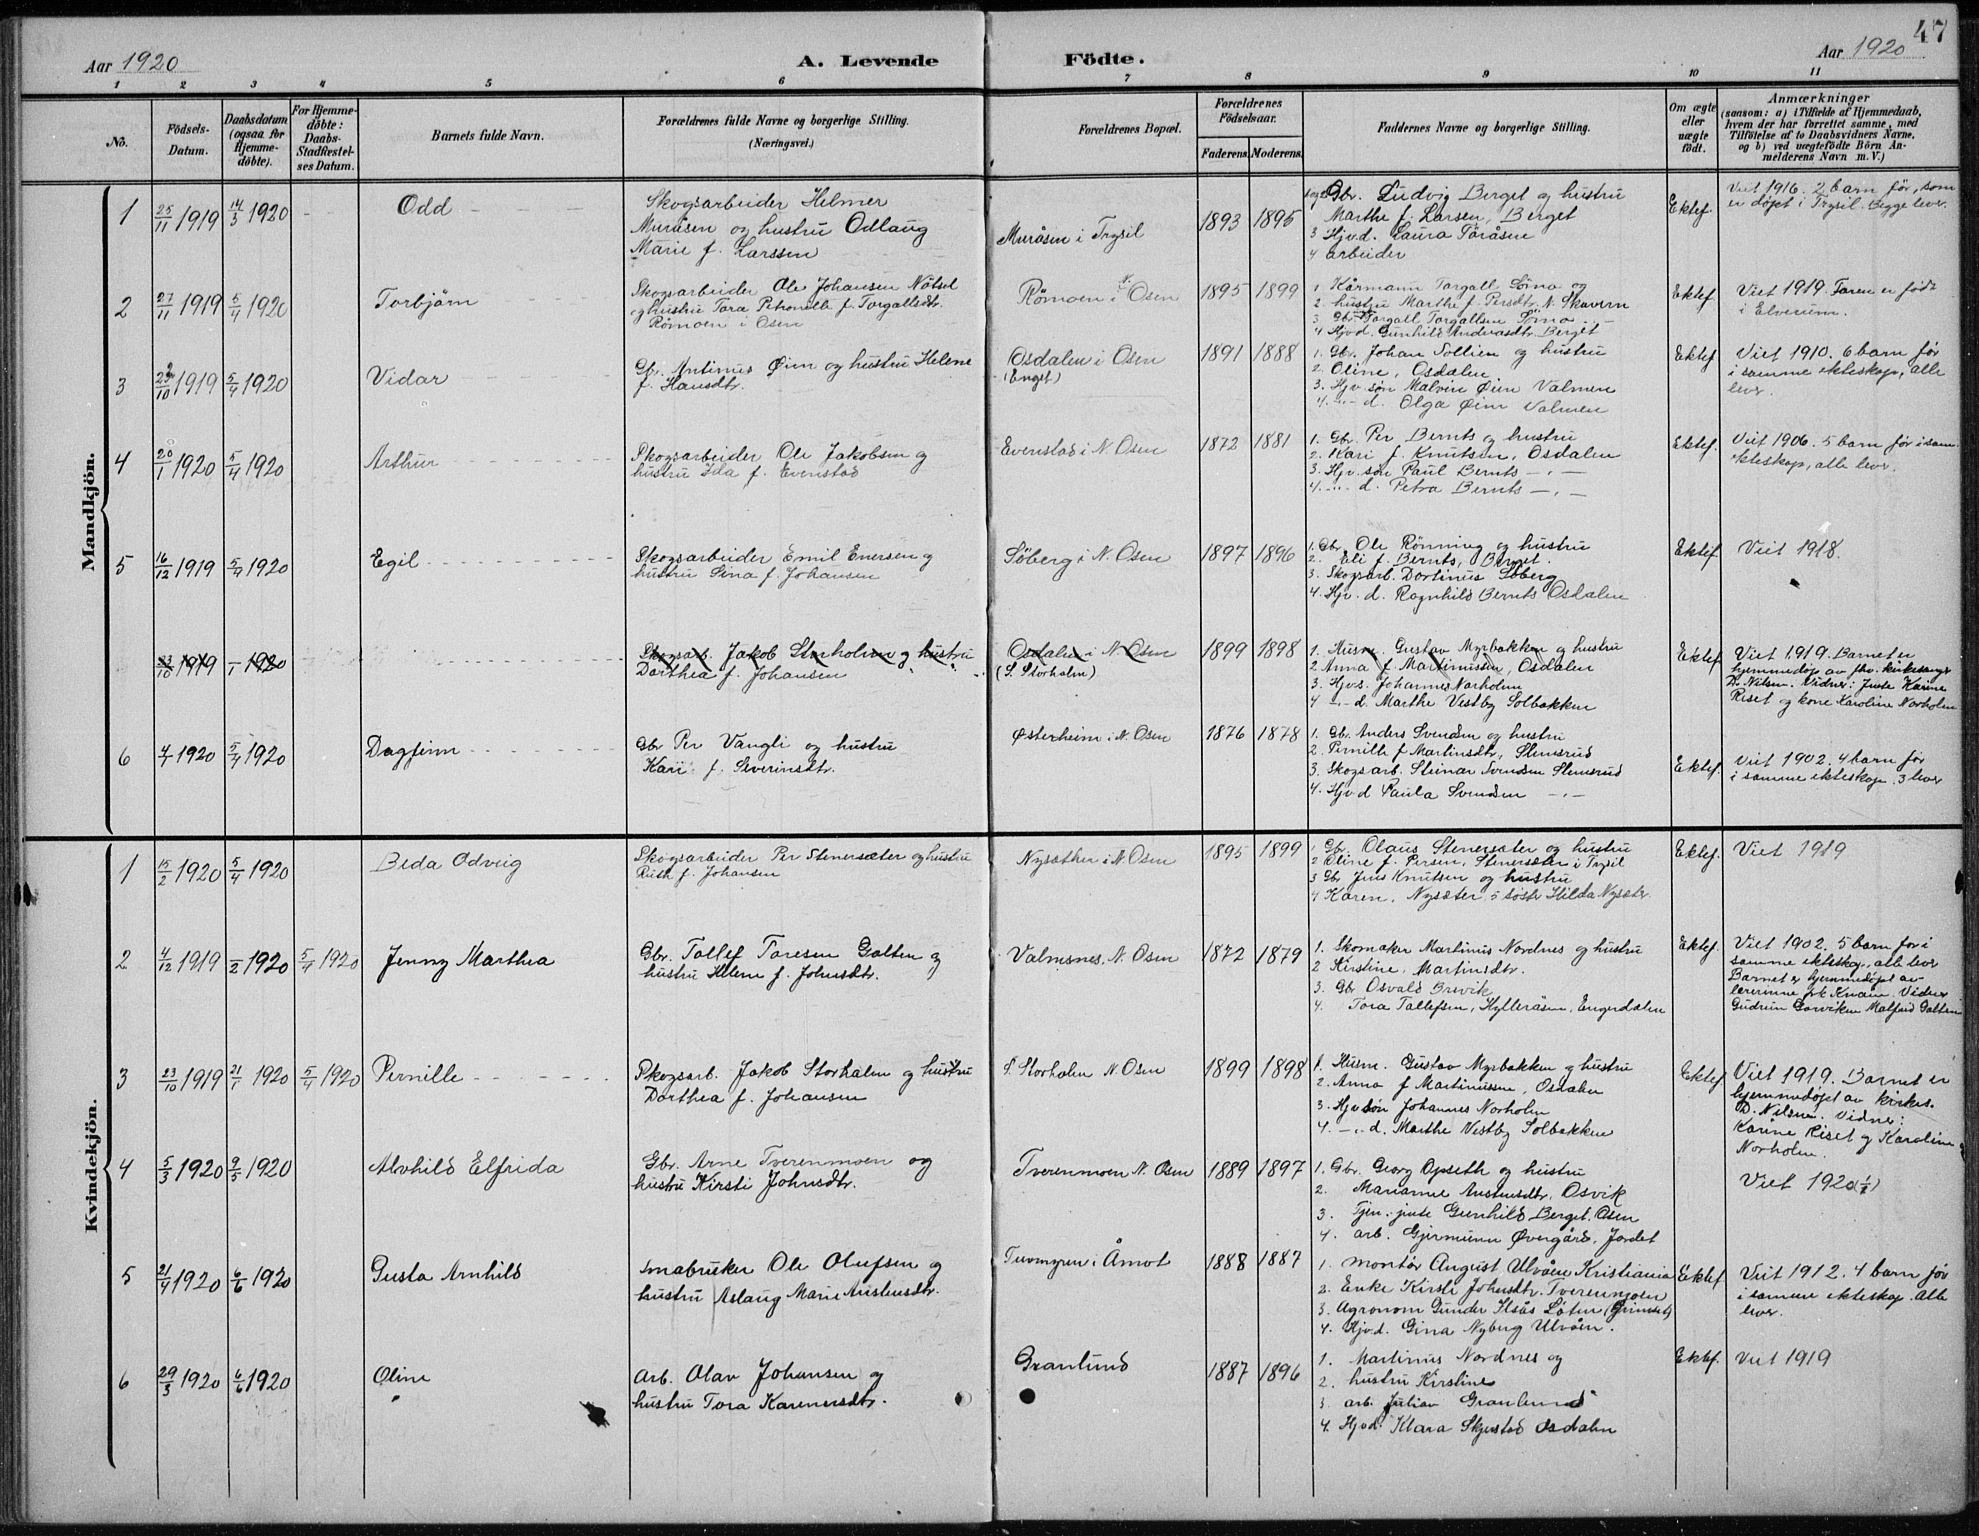 47
Aar 1920
A. Levende Födte.
Aar 1920
1 2 3 4 5 6 7 8 9 10 11
No.
Födsels-Datum.
Daabsdatum (ogsaa for Hjemme-döbte).
For Hjemme-döbte: Daabs Stadfæstel-ses Datum.
Barnets fulde Navn.
Forældrenes fulde Navne og borgerlige Stilling. (Næringsvei.)
Forældrenes Bopæl.
Forældrenes Födselsaar.
Faderens. Moderens.
Faddernes Navne og borgerlige Stilling.
Om ægte eller uægte födt.
Anmærkninger
(saasom: a) i Tilfælde af Hjemmedaab, hvem der har forrettet samme, med Tilföielse af to Daabsvidners Navne, og b) ved uægtefödte Börn An-melderens Navn m. V.)
Mandkjön.
1 25/11 1919 14/3 1920 Odd
Skogsarbeider Helmer
Muråsen og hustru Odlaug
Marie f. Larssen
Muråsen i Trysil 1893 1895
Gbr. Ludvig Berget og hustru
Marthe f. Larsen, Berget
3 Hjv.d. Laura Töråsen
4 arbeider
Ektef.
Viet 1916. 2 barn før, som
er døpt i Trysil. Begge lever.
2 27/11 1919 5/4 1920 Torbjörn
Skogsarbeider Ole Johansen Nötsel
og hustru Tora Petronelle f. Torgallsdtr.
Römoen i Osen
Römoen i N. Osen 1895 1899
1 Kårmann Torgall Sömo og
2. hustru Marthe f. Persdtr. N. Skavern
3 Gbr. Torgall Torgallsen Sömo
4 Hjv.d. Gunhild Andreasdtr. Berget
Ektef.
Viet 1919. Faren er født
i Elverum.
3 /10 1919 5/4 1920 Vidar
Gbr. Antinus Øien og hustru Helene
f. Hansdtr.
Osdalen i Osen
(Enget)
1891 1888
1. Gbr. Johan Sollien og hustru
2. Oline, Osdalen
3. Hjv. søn Malvin Øien Valmen
4. -"- d. Olga Øien Valmen
Ektef
Viet 1910. 6 barn før
i samme ekteskap, alle
lever.
4 20/1 1920 5/4 1920 Arthur
Skogsarbeider Ole Jakobsen og
hustru Ida f. Evenstad
Evenstad i N. Osen 1872 1881
1. Gbr. Per Bernts og hustru
2. Kari f. Knutsen, Osdalen
3. Hjv. søn Paul Bernts -"-
4. -"- d. Petra Bernts -"-
Ektef.
Viet 1906. 5 barn før i sam.
ekteskap, alle lever.
5 16/12 1919 5/4 1920 Egil
Skogsarbeider Emil Enersen og
hustru Sina f. Johansen
Söberg i N. Osen 1897 1896
1. Gbr. Ole Rönning og hustru
2. Eli f. Bernts, Berget.
3. Skogsarb. Dortinus Söberg
4. Hjv. d. Ragnhild Bernts Osdalen
Ektef.
Viet 1918.
23/10 1919 /1 1920
Skogsarb. Jakob Storholmen og hustru
Dorthea f. Johansen
Osdalen i N. Osen
(S. Storholm)
1899 1898
1. Husm. Gustav Myrbakken og hustru
2. Anna f. Martinussen, Osdalen
3. Hjv.s. Johannes Norholm
4 -"- d. Marthe Vestby Solbakken
Ektef
Viet 1919. Barnet er
hjemmedøpt av fhv. kirkesanger
D. Nilsen. Vidner: Jente Karine
Riset og kone Karoline Norholm
6 4/1 1920 5/4 1920 Dagfinn
Gbr Per Vangli og hustru
Kari f. Severinsdtr.
Østerheim i N. Osen 1876 1878
1. Gb. Anders Svendsen og hustru
2. Pernille f Martinsdtr., Stensrud
3. Skogsarb. Steinar Svendsen Stensrud
4. Hjv.d Paula Svendsen -"-
Ektef.
Viet 1902. 4 barn før
i samme ekteskap. 3 lever
Kvindekjön.
1 15/2 1920 5/4 1920 Beda Odveig
Skogsarbeider Per Stenersæter og hustru
Ruth f. Johansen
Nysæther i N. Osen 1895 1899
1 Gb. Olaus Stenersæter og hustru
2 Oline f. Persen, Stenersæter i Trysil
3 Gbr Jens Knutsen og hustru
4 Karen, Nysæter, 5 søster Hilda Nysæter
Ektef.
Viet 1919
2 4/12 1919 /2 1920 5/4 1920 Jenny Marthea
Gbr. Tollef Toresen Galten og
hustru Helene f. Johnsdtr.
Valmsnes, N. Osen 1872 1879
1. Skomaker Martinus Nordnes og hustru
2 Kirstine, Martinsdtr.
3. Gb Osvald Brevik
4. Tora Tollefsen, Hylleråsen, Engerdalen
Ektef.
Viet 1902. 5 barn før i
samme ekteskap, alle lever
Barnet er hjemmedøpt av
lærerinne frk Knain. Vidner
Gudrun Gorviken Malfrid Galten
3 23/10 1919 21/1 1920 5/4 1920 Pernille
Skogsarb. Jakob Storholm og hustru
Dorthea f. Johansen
S. Storholm N. Osen 1899 1898
1. Husm. Gustav Myrbakken og hustru
2. Anna f Martinussen, Osdalen
3. Hjv søn Johannes Norholm
4. -"- d. Marthe Vestby Solbakken
Ektef
Viet 1919. Barnet er
hjemmedøpt av kirkes.
D. Nilsen. Vidner:
Karine Riset og Karoline
Norholm.
4 5/3 1920 9/5 1920 Alvhild Elfrida
Gbr. Arne Tverenmoen og
hustru Kirsti Johnsdtr.
Tverenmoen N. Osen 1889 1897
1. Gbr. Georg Opseth og hustru
2. Marianne Austensdtr. Osvik
3. Tjen. jente Gunhild Berget. Osen
4. arb. Gjermunn Øvergård, Jordet
Viet 1920
5 21/4 1920 6/6 1920 Gusta Arnhild
Småbruker Ole Olufsen og
hustru Aslaug Marie Austensdtr.
Tuvmyren i Åmot 1888 1887
1. montör August Ulvåen Kristiania
2. Enke Kirsti Johnsdtr. Tverenmoen
3. Agronom Gunder Ilsås Löten (Grimset)
4. Hjv.d. Gina Nyberg Ulvåen.
Ektef
Viet 1912. 4 barn før
i samme ekteskap. Alle
lever.
6 29/3 1920 6/6 1920 Oline
Arb. Olav Johansen og
hustru Tora Karenersdtr.
Granlund 1887 1896
1. Martinus Nordnes og
2. hustru Kirstine
3. arb. Julian Granlund
4. Hjv.d. Klara Skjerstad Osdalen
Ektef.
Viet 1919